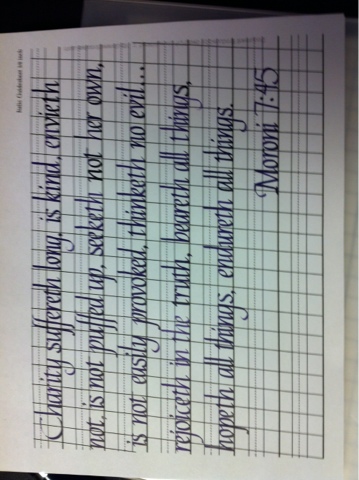 Italic Guidesheet 1/4 inch
Charity suffereth long, is kind, envieth
not, is not puffed up, seeketh not her own,
is not easily provoked, thinketh no evil...
rejoiceth in the truth, beareth all things,
hopeth all things, endureth all things.
Moroni 7:45